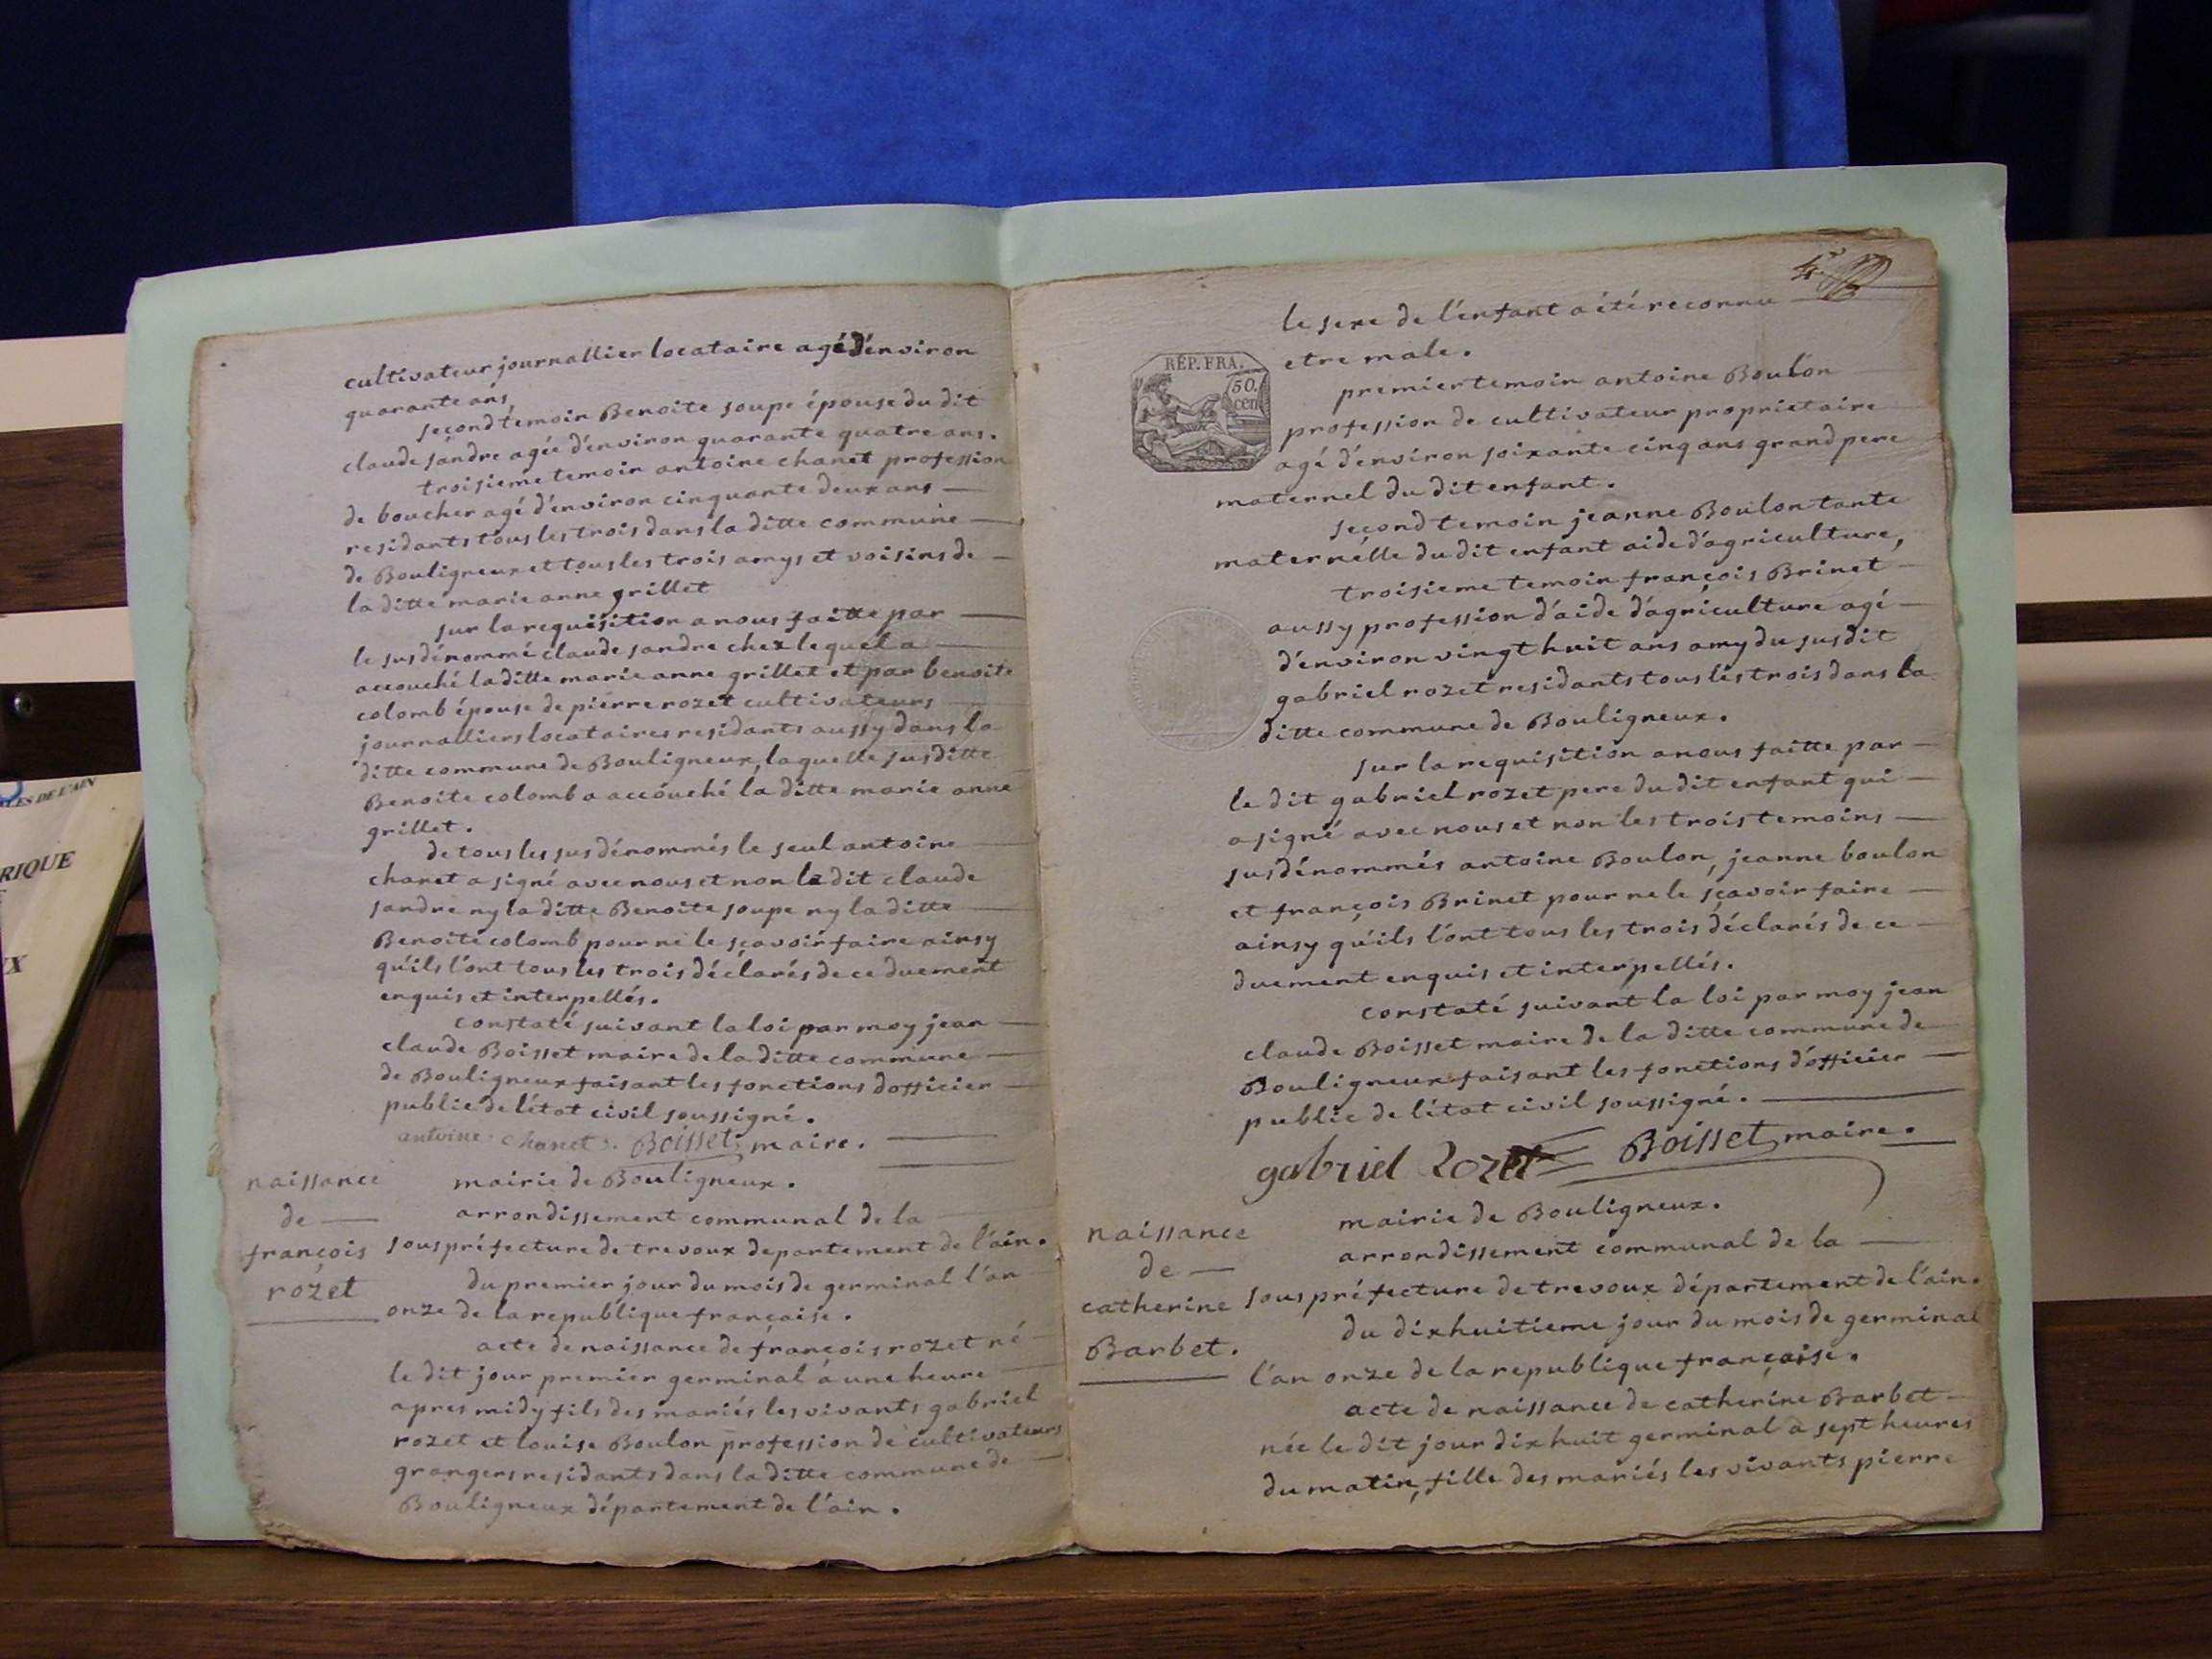 cultivateur journallier locataire agé d'environ
quarante ans
second témoin Benoite soupe épouse du dit
claude sandre agée d'environ quarante quatre ans.
troisieme temoin antoine chanet profession
de boucher agé d'environ cinquante deux ans
residants tous les trois dans la ditte commune
de Bouligneux et tous les trois amys et voisins de
la ditte marie anne grillet
sur la requisition a nous faitte par
le susdénommé claude sandre chez lequel a
accouché la ditte marie anne grillet et par benoite
colomb épouse de pierre rozet cultivateurs
journalliers locataires residants aussy dans la
ditte commune de Bouligneux, laquelle susditte
Benoite colomb a accouché la ditte marie anne
grillet.
de tous les susdénommés le seul antoine
chanet a signé avec nous et non le dit claude
sandre ny la ditte Benoite soupe ny la ditte
Benoite colomb pour ne le sçavoir faire ainsy
qu'ils l'ont tous les trois déclarés de ce duement
enquis et interpellés.
constaté suivant la loi par moy jean
claude Boisset maire de la ditte commune
de Bouligneux faisant les fonctions d'officier
public de l'état civil soussigné.
antoine chanet. Boisset maire.
naissance
de
françois
rozet
mairie de Bouligneux.
arrondissement communal de la
souspréfecture de trevoux departement de l'ain.
du premier jour du mois de germinal l'an
onze de la republique française.
acte de naissance de françois rozet né
le dit jour premier germinal à une heure
apres midy fils des mariés les vivants gabriel
rozet et louise Boulon profession de cultivateurs
grangers residants dans la ditte commune de
Bouligneux département de l'ain.
le sexe de l'enfant a été reconnu
etre male.
REP. FRA.
50.
cen
premier temoin antoine Boulon
profession de cultivateur proprietaire
agé d'environ soixante cinq ans grand pere
maternel du dit enfant.
second temoin jeanne Boulon tante
maternélle du dit enfant aide d'agriculture,
troisieme temoin françois Brinet
aussy profession d'aide d'agriculture agé
d'environ vingt huit ans amy du susdit
gabriel rozet residants tous les trois dans la
ditte commune de Bouligneux.
sur la requisition a nous faitte par
le dit gabriel rozet pere du dit enfant qui
a signé avec nous et non les trois temoins
susdénommés antoine Boulon, jeanne boulon
et françois Brinet pour ne le sçavoir faire
ainsy qu'ils l'ont tous les trois déclarés de ce
duement enquis et interpellés.
constaté suivant la loi par moy jean
claude Boisset maire de la ditte commune de
Bouligneux faisant les fonctions d'officier
public de l'état civil soussigné.
gabriel Rozet Boisset maire.
naissance
de
catherine
Barbet.
mairie de Bouligneux.
arrondissement communal de la
souspréfecture de trevoux département de l'ain.
du dixhuitieme jour du mois de germinal
l'an onze de la republique française.
acte de naissance de catherine Barbet
née le dit jour dixhuit germinal à sept heures
du matin, fille des mariés les vivants pierre
DE L'AIN
RIQUE